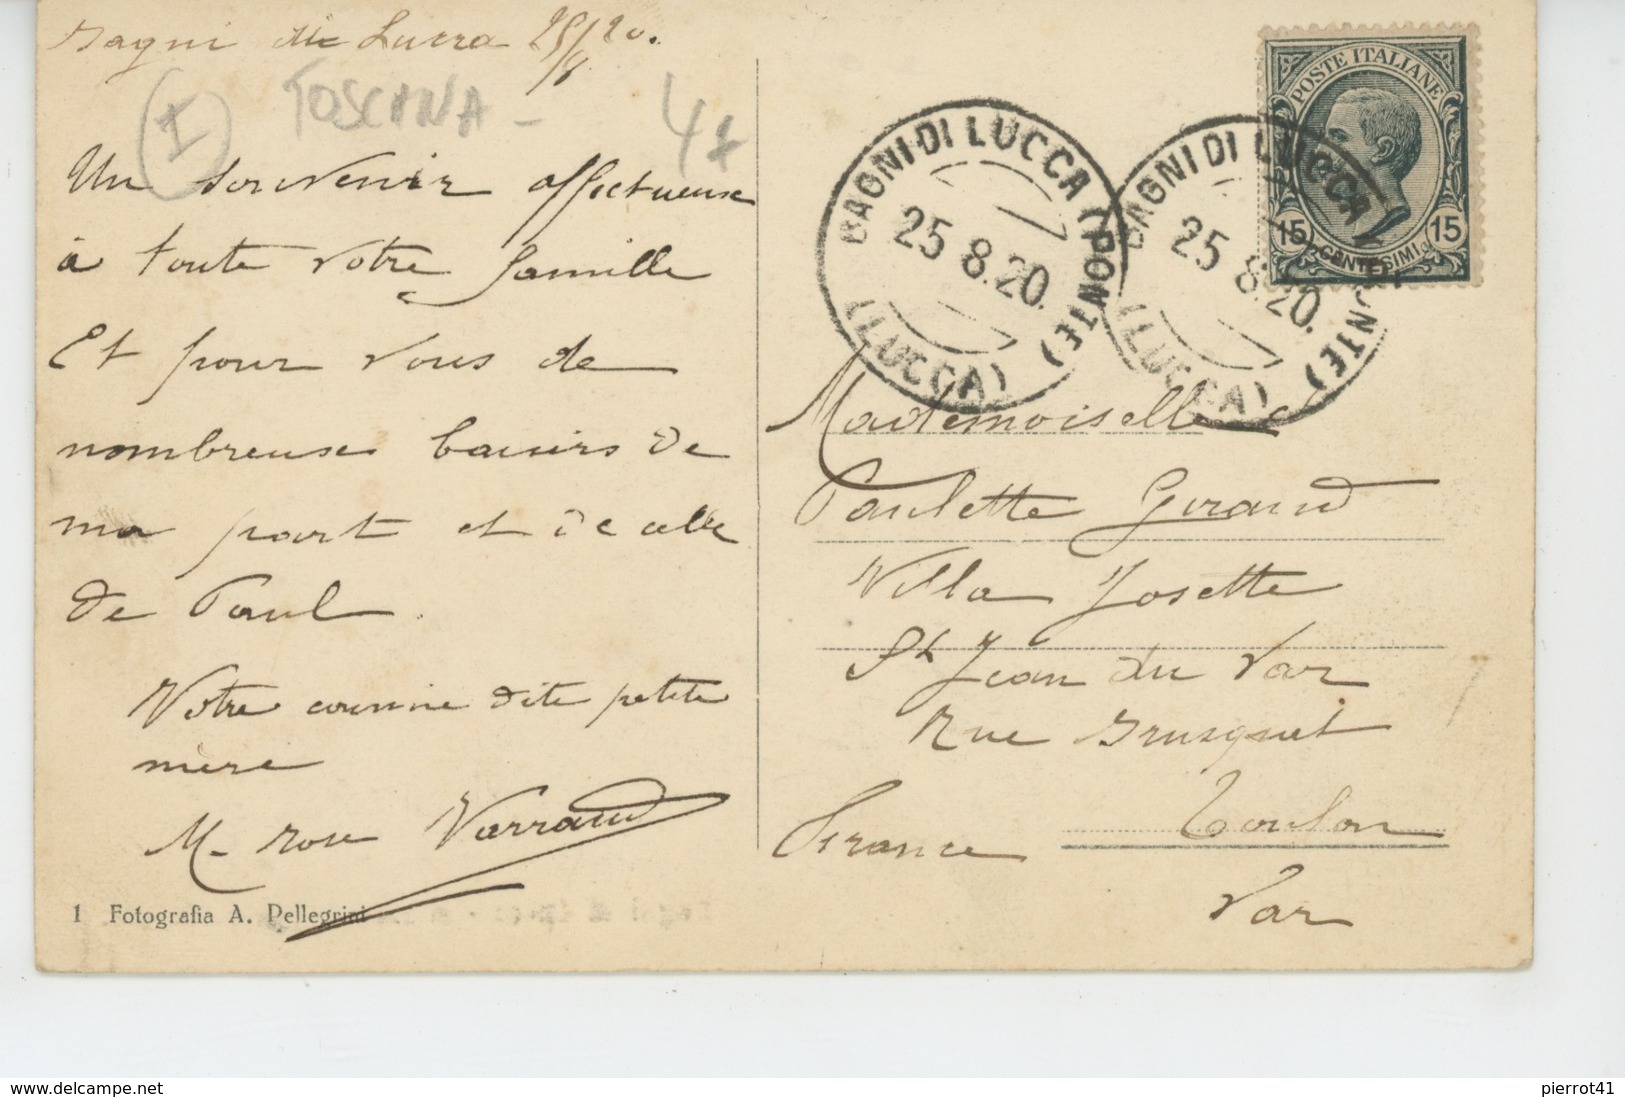 Bagni di Lucca 25/8/20.
(I) TOSCANA - 4
Un souvenir affectueuse
à toute votre famille
Et pour vous de
nombreuse baisers de
ma part et de celle
de Paul.
Votre cousine dite petite
mère
M. Rose Varraud
1 Fotografia A. Pellegrini
POSTE ITALIANE
15 CENTESIMI 15
BAGNI DI LUCCA (PONTE)
25 8.20.
(LUCCA)
BAGNI DI LUCCA (PONTE)
25 8.20.
(LUCCA)
Mademoiselle
Paulette Giraud
Villa Josette
St Jean du Var
Rue
Toulon
France
Var
www.delcampe.net
pierrot41